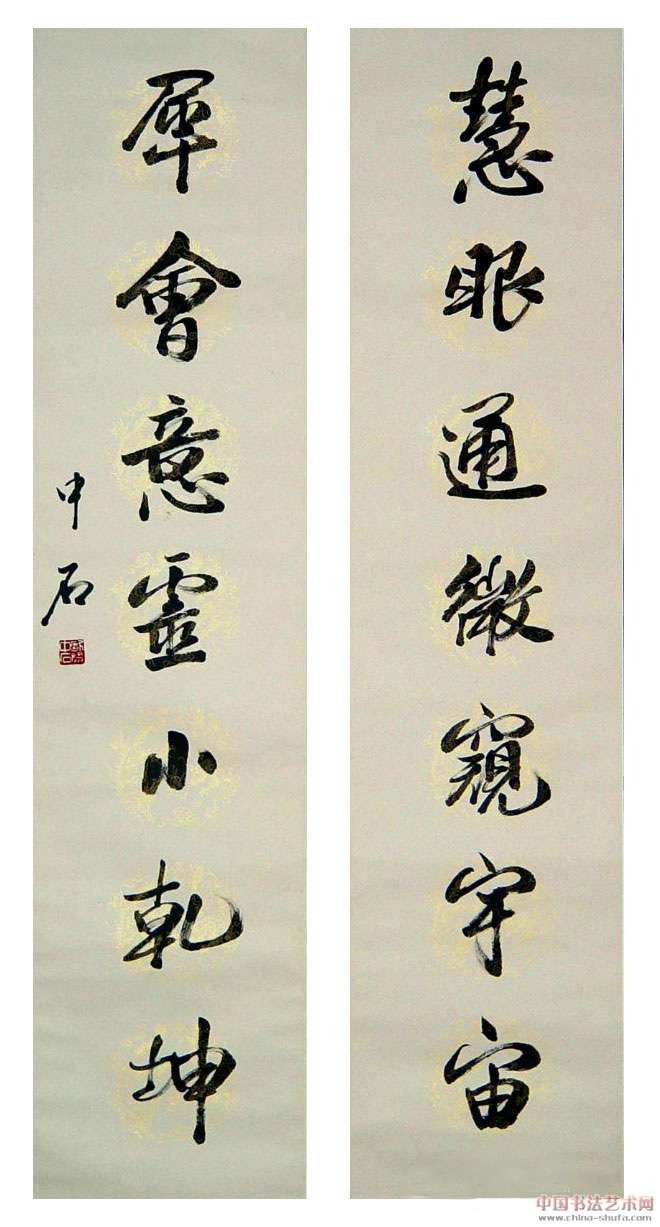 慧眼通微窺宇宙
犀會意靈小乾坤
中石
中国书法艺术网
www.china-shufa.com